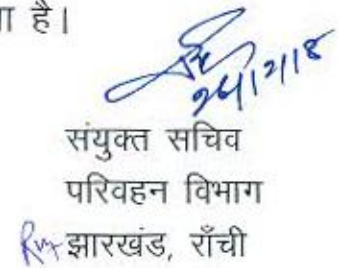 है।
26/12/18
संयुक्त सचिव
परिवहन विभाग
झारखंड, राँची